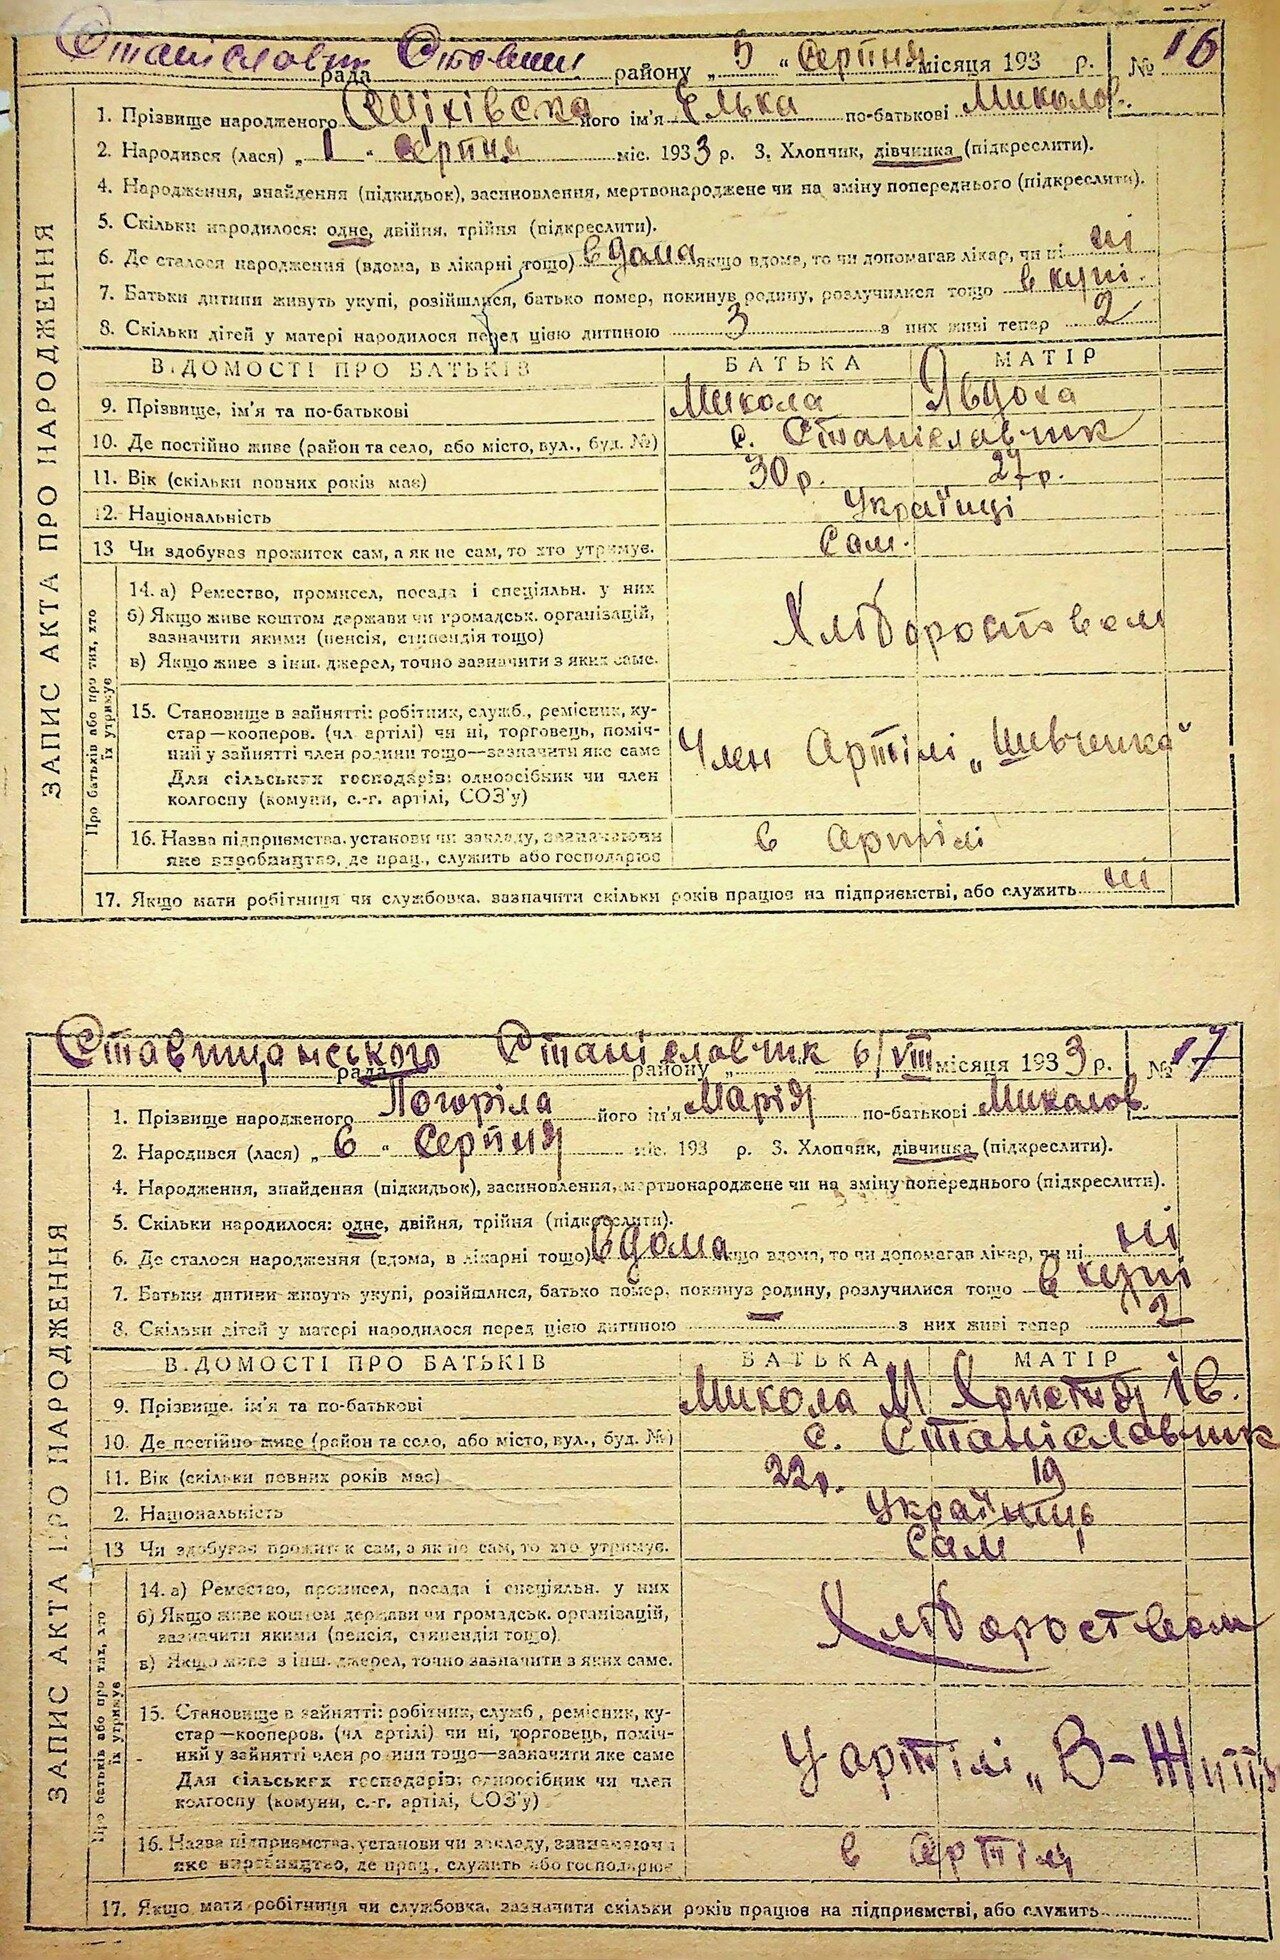 Станіславчик рада Ставищ району „ 5 “ Серпня місяця 193 р. № 16
ЗАПИС АКТА ПРО НАРОДЖЕННЯ
1. Прізвище народженого його ім'я Єлька по-батькові Миколов.
2. Народився (лася) „ 1 “ Серпня міс. 1933 р. 3. Хлопчик, дівчинка (підкреслити).
4. Народження, знайдення (підкидьок), засиновлення, мертвонароджене чи на зміну попереднього (підкреслити).
5. Скільки народилося: одне, двійня, трійня (підкреслити).
6. Де сталося народження (вдома, в лікарні тощо) вдома якщо вдома, то чи допомагав лікар, чи ні ні
7. Батьки дитини живуть укупі, розійшлися, батько помер, покинув родину, розлучилися тощо в купі.
8. Скільки дітей у матері народилося перед цією дитиною 3 з них живі тепер 2
ВІДОМОСТІ ПРО БАТЬКІВ БАТЬКА МАТІР
9. Прізвище, ім'я та по-батькові Микола Явдоха
10. Де постійно живе (район та село, або місто, вул., буд. №) с. Станіславчик
11. Вік (скільки повних років має) 30 р. 27 р.
12. Національність Українці
13 Чи здобуває прожиток сам, а як не сам, то хто утримує. Сам.
Про батьків або про тих, хто їх утримує
14. а) Ремество, промисел, посада і спеціяльн. у них
б) Якщо живе коштом держави чи громадськ. організацій,
зазначити якими (пенсія, стипендія тощо) Хліборобством
в) Якщо живе з інш. джерел, точно зазначити з яких саме.
15. Становище в зайнятті: робітник, служб., ремісник, ку-
стар—кооперов. (чл артілі) чи ні, торговець, поміч-
ний у зайнятті член родини тощо—зазначити яке саме Член Артілі „Шевченка“
Для сільських господарів: одноосібник чи член
колгоспу (комуни, с.-г. артілі, СОЗ'у)
16. Назва підприємства, установи чи закладу, зазначаючи в артілі
яке виробництво, де прац., служить або господарює
17. Якщо мати робітниця чи службовка, зазначити скільки років працює на підприємстві, або служить ні
Ставищанського рада Станіславчик району „ 6/VIII місяця 1933 р. № 17
ЗАПИС АКТА ПРО НАРОДЖЕННЯ
1. Прізвище народженого Погоріла його ім'я Марія по-батькові Миколов.
2. Народився (лася) „ 6 “ Серпня міс. 193 р. 3. Хлопчик, дівчинка (підкреслити).
4. Народження, знайдення (підкидьок), засиновлення, мертвонароджене чи на зміну попереднього (підкреслити).
5. Скільки народилося: одне, двійня, трійня (підкреслити).
6. Де сталося народження (вдома, в лікарні тощо) вдома якщо вдома, то чи допомагав лікар, чи ні ні
7. Батьки дитини живуть укупі, розійшлися, батько помер, покинув родину, розлучилися тощо в купі
8. Скільки дітей у матері народилося перед цією дитиною — з них живі тепер 2
ВІДОМОСТІ ПРО БАТЬКІВ БАТЬКА МАТІР
9. Прізвище, ім'я та по-батькові Микола М Христя Ів.
10. Де постійно живе (район та село, або місто, вул., буд. №) с. Станіславчик
11. Вік (скільки повних років має) 22 р. 19
2. Національність Українці
13 Чи здобуває прожиток сам, а як не сам, то хто утримує. Сам
Про батьків або про тих, хто їх утримує
14. а) Ремество, промисел, посада і спеціяльн. у них
б) Якщо живе коштом держави чи громадськ. організацій, Хліборобством
зазначити якими (пенсія, стипендія тощо)
в) Якщо живе з інш. джерел, точно зазначити з яких саме.
15. Становище в зайнятті: робітник, служб., ремісник, ку-
стар—кооперов. (чл артілі) чи ні, торговець, поміч-
ний у зайнятті член родини тощо—зазначити яке саме У артілі „В-Життя
Для сільських господарів: одноосібник чи член
колгоспу (комуни, с.-г. артілі, СОЗ'у)
16. Назва підприємства, установи чи закладу, зазначаючи в артілі
яке виробництво, де прац., служить або господарює
17. Якщо мати робітниця чи службовка, зазначити скільки років працює на підприємстві, або служить